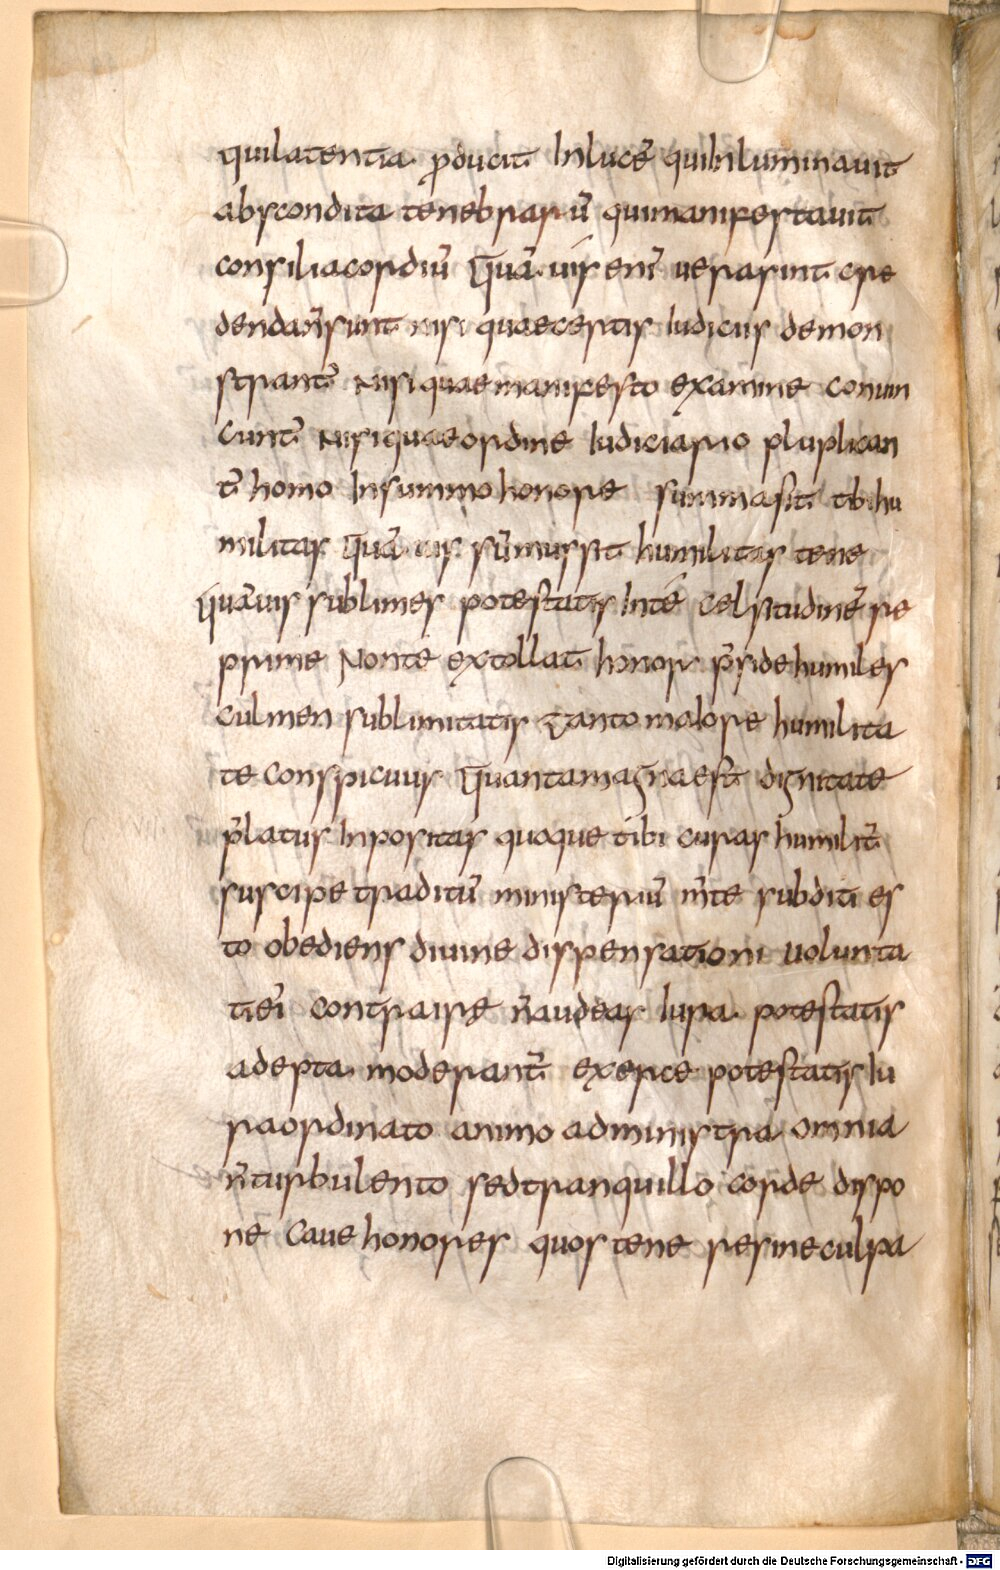 quilatentia producit Inlucē quiInluminauit
abscondita tenebrarū quimanifestauit
consiliacordiū Quāuis enī uerasint cre
dendan̄sunt nisi quaecertis Iudiciis demon
strant̄ Nisiquaemanifesto examine conuin
cunt̄ Nisiquaeordine Iudiciario pluplican
t̄ homo Insummohonore summasit tibihu
militas Quāuis sūmussit humilitas tene
Quāuis sublimes potestatis Intē celsitudinē re
prime Nontē extollat honor p̄sidehumiles
culmen sublimitatis Tantomaiore humilita
te conspicuus Quantamagnaest dignitate
p̄latus Inpositas quoquetibi curas humilit̄
suscipe traditū ministeriū m̄te subditi es
to obediens diuine dispensationi uolunta
tiēi contraire n̄audeas Iura potestatis
adepta moderant̄ exerce potestatis Iu
raordinato animo administra omnia
n̄turbulento sedtranquillo corde dispo
ne Cauehonores quostene resineculpa
Digitalisierung gefördert durch die Deutsche Forschungsgemeinschaft - DFG